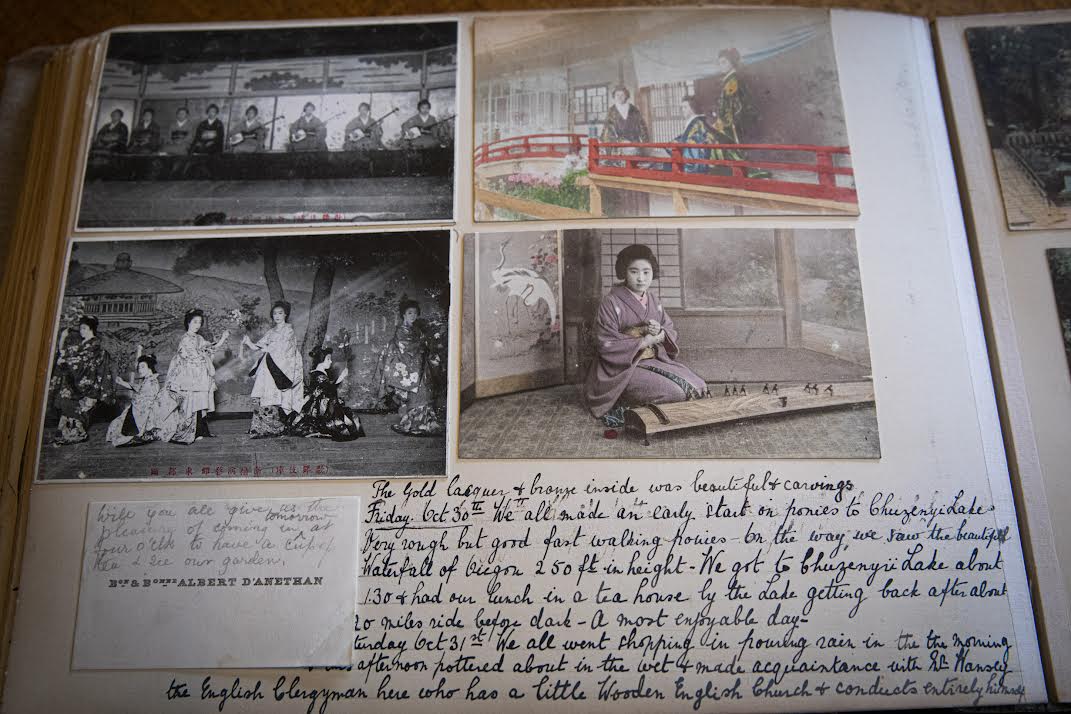 The Gold lacquer & bronze inside was beautiful & carvings
Friday. Oct 30th We all made an early start on ponies to Chuzenyi Lake
Very rough but good fast walking ponies - On the way we saw the beautiful
Waterfall of 250 ft in height - We got to Chuzenyii Lake about
1.30 & had our lunch in a tea house by the Lake getting back after about
20 miles ride before dark - A most enjoyable day -
turday Oct 31st We all went shopping in pouring rain in the the morning
afternoon pottered about in the wet & made acquaintance with
the English Clergyman here who has a little Wooden English Church & conducts entirely himself
Will you all give us the
pleasure of coming in tomorrow at
four o'clk to have a cup of
tea & see our garden.
Bon & Bonne ALBERT D'ANETHAN